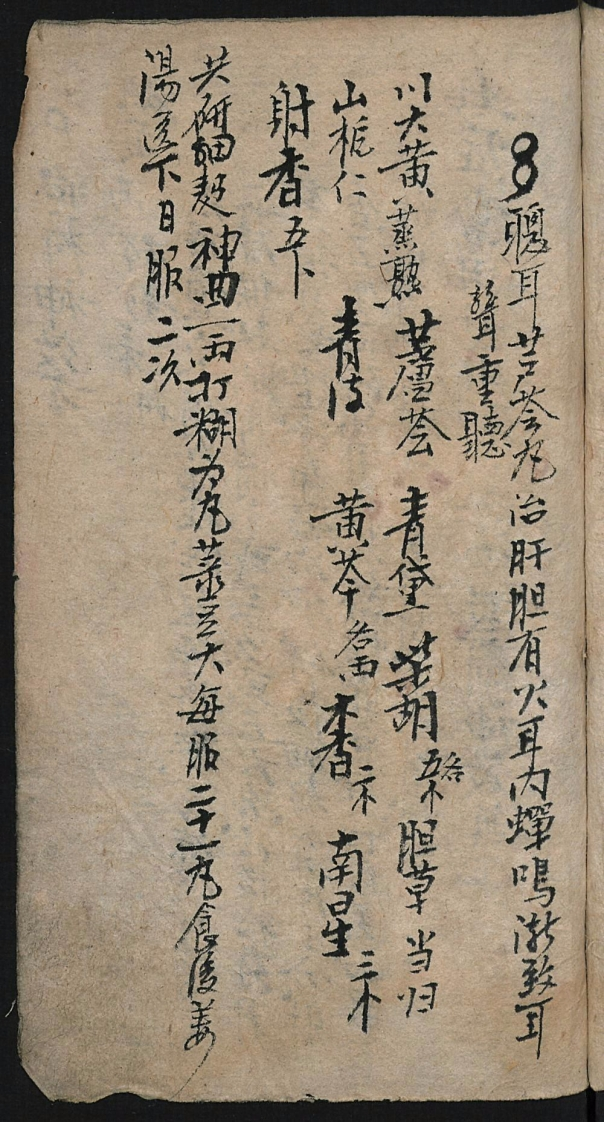 聰耳芦荟丸治肝胆有火耳内蟬鳴漸致耳
聾重聽
川大黄蒸熟 蘆荟 青黛 柴胡各五 胆草 当归
山栀仁 青皮 黄芩各一両 木香二 南星三
射香五卜
共研細麫神曲一両打糊为丸菉豆大每服二十一丸食後姜
湯送下日服二次